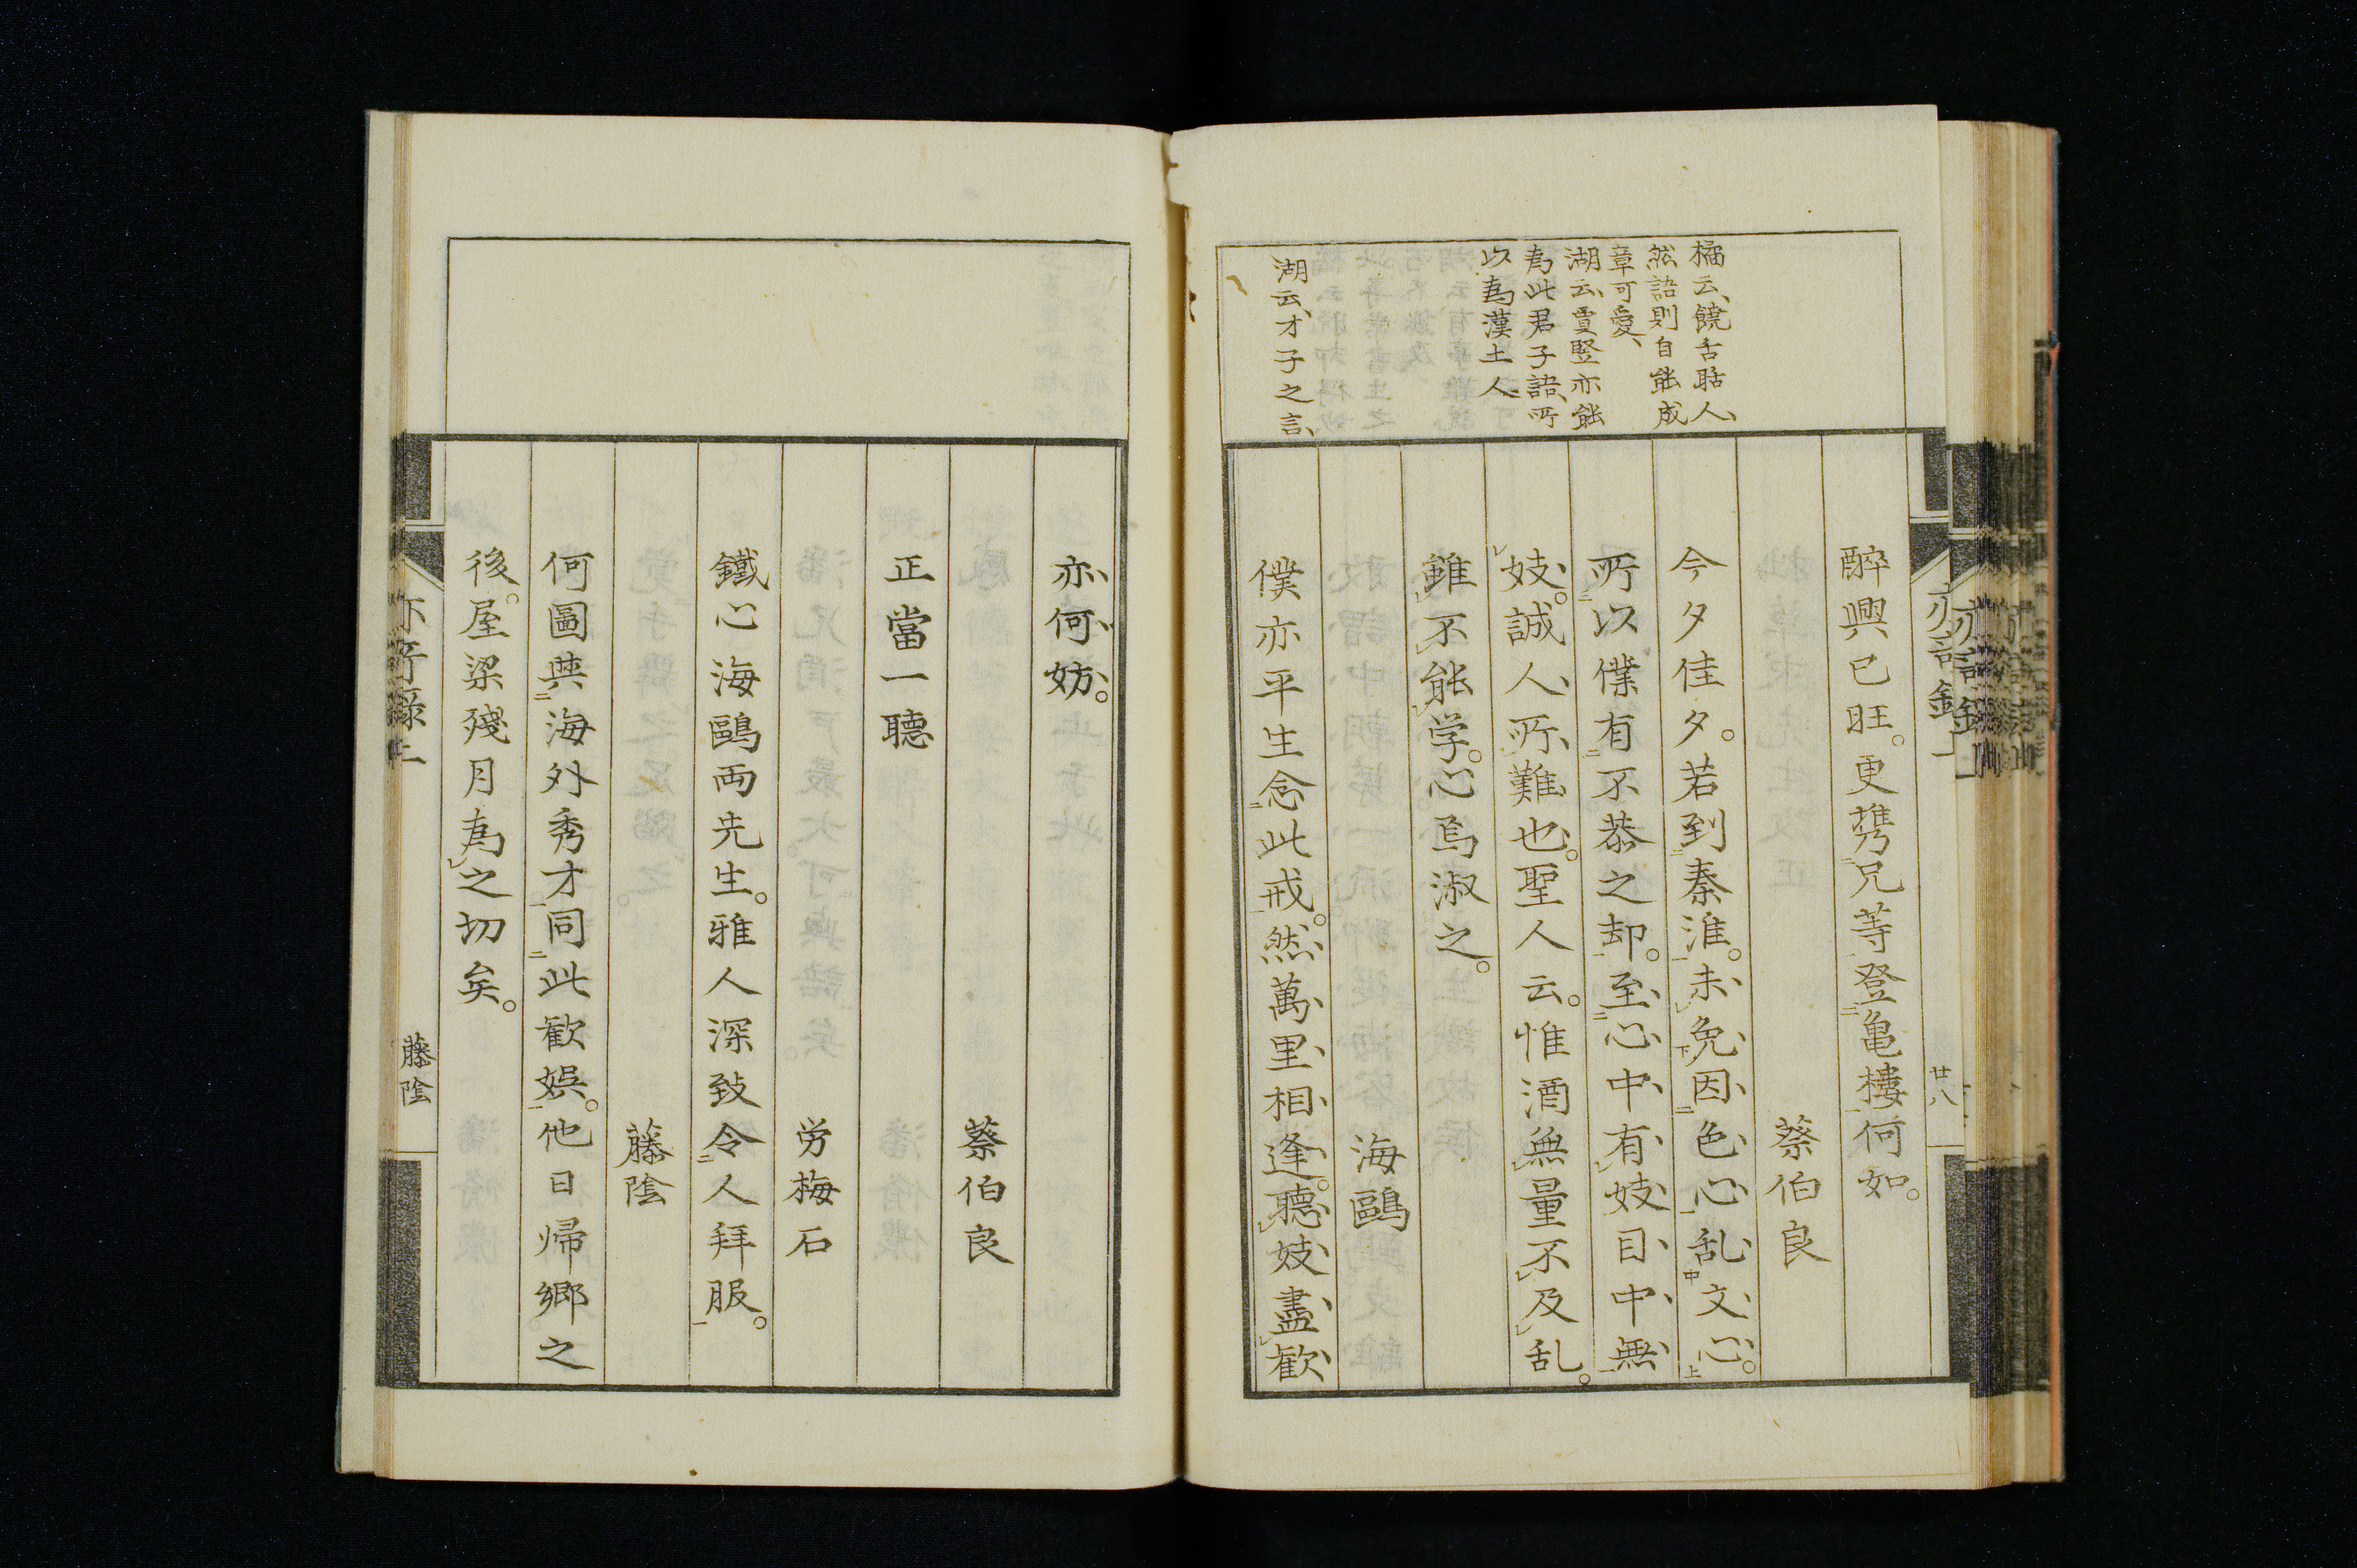 橘云、饒舌聒人、
然語則自能成
章可愛、
湖云、賈豎亦能
為此君子語、所
以為漢土人、
湖云、才子之言、
醉興已旺。更携兄等登亀楼何如。
蔡伯良
今夕佳夕。若到秦淮。未免因色心乱文心。
所以僕有不恭之却。至心中有妓目中無
妓。誠人所難也。聖人云。惟酒無量不及乱。
雖不能学。心焉淑之。
海鷗
僕亦平生念此戒。然萬里相逢。聴妓盡歓
廿八
亦何妨。
蔡伯良
正當一聴
労梅石
鐵心海鷗両先生。雅人深致令人拜服。
藤陰
何圖與海外秀才同此歓娯。他日帰郷之
後。屋梁殘月為之切矣。
藤陰